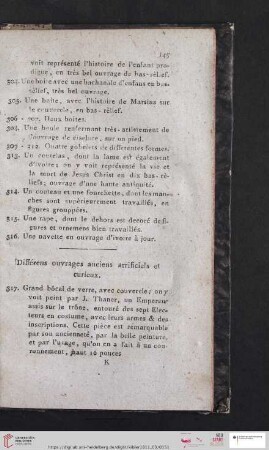 145
voit représenté l'histoire de l'enfant pro-
digue, en très bel ouvrage du bas-rélief.
304. Une boite avec une bachanale d'enfans en bas-
rélief, très bel ouvrage.
305. Une boîte, avec l'histoire de Marsias sur
le couvercle, en bas-rélief.
306 - 307. Deux boites.
308. Une boule renfermant très-artistement de
l'ouvrage de ciselure, sur un pied.
309 - 312. Quatre gobelets de différentes formes.
313. Un couteau, dont la lame est également
d'ivoire; on y voit représenté la vie et
la mort de Jésus Christ en dix bas-ré-
liefs; ouvrage d'une haute antiquité.
314. Un couteau et une fourchette, dont les man-
ches sont supérieurement travaillés, en
figures grouppées.
315. Une rape, dont le dehors est decoré de fi-
gures et ornemens bien travaillés.
316. Une navette en ouvrage d'ivoire à jour.
Différens ouvrages anciens artificiels et
curieux.
317. Grand bôcal de verre, avec couvercle; on y
voit peint par J. Thanet, un Empereur
assis sur le trône, entouré des sept Elec-
teurs en costume, avec leurs armes & des
inscriptions. Cette pièce est remarquable
par son ancienneté, par la belle peinture,
et par l'usage, qu'on en a fait à un cou-
ronnement, haut 16 pouces
K